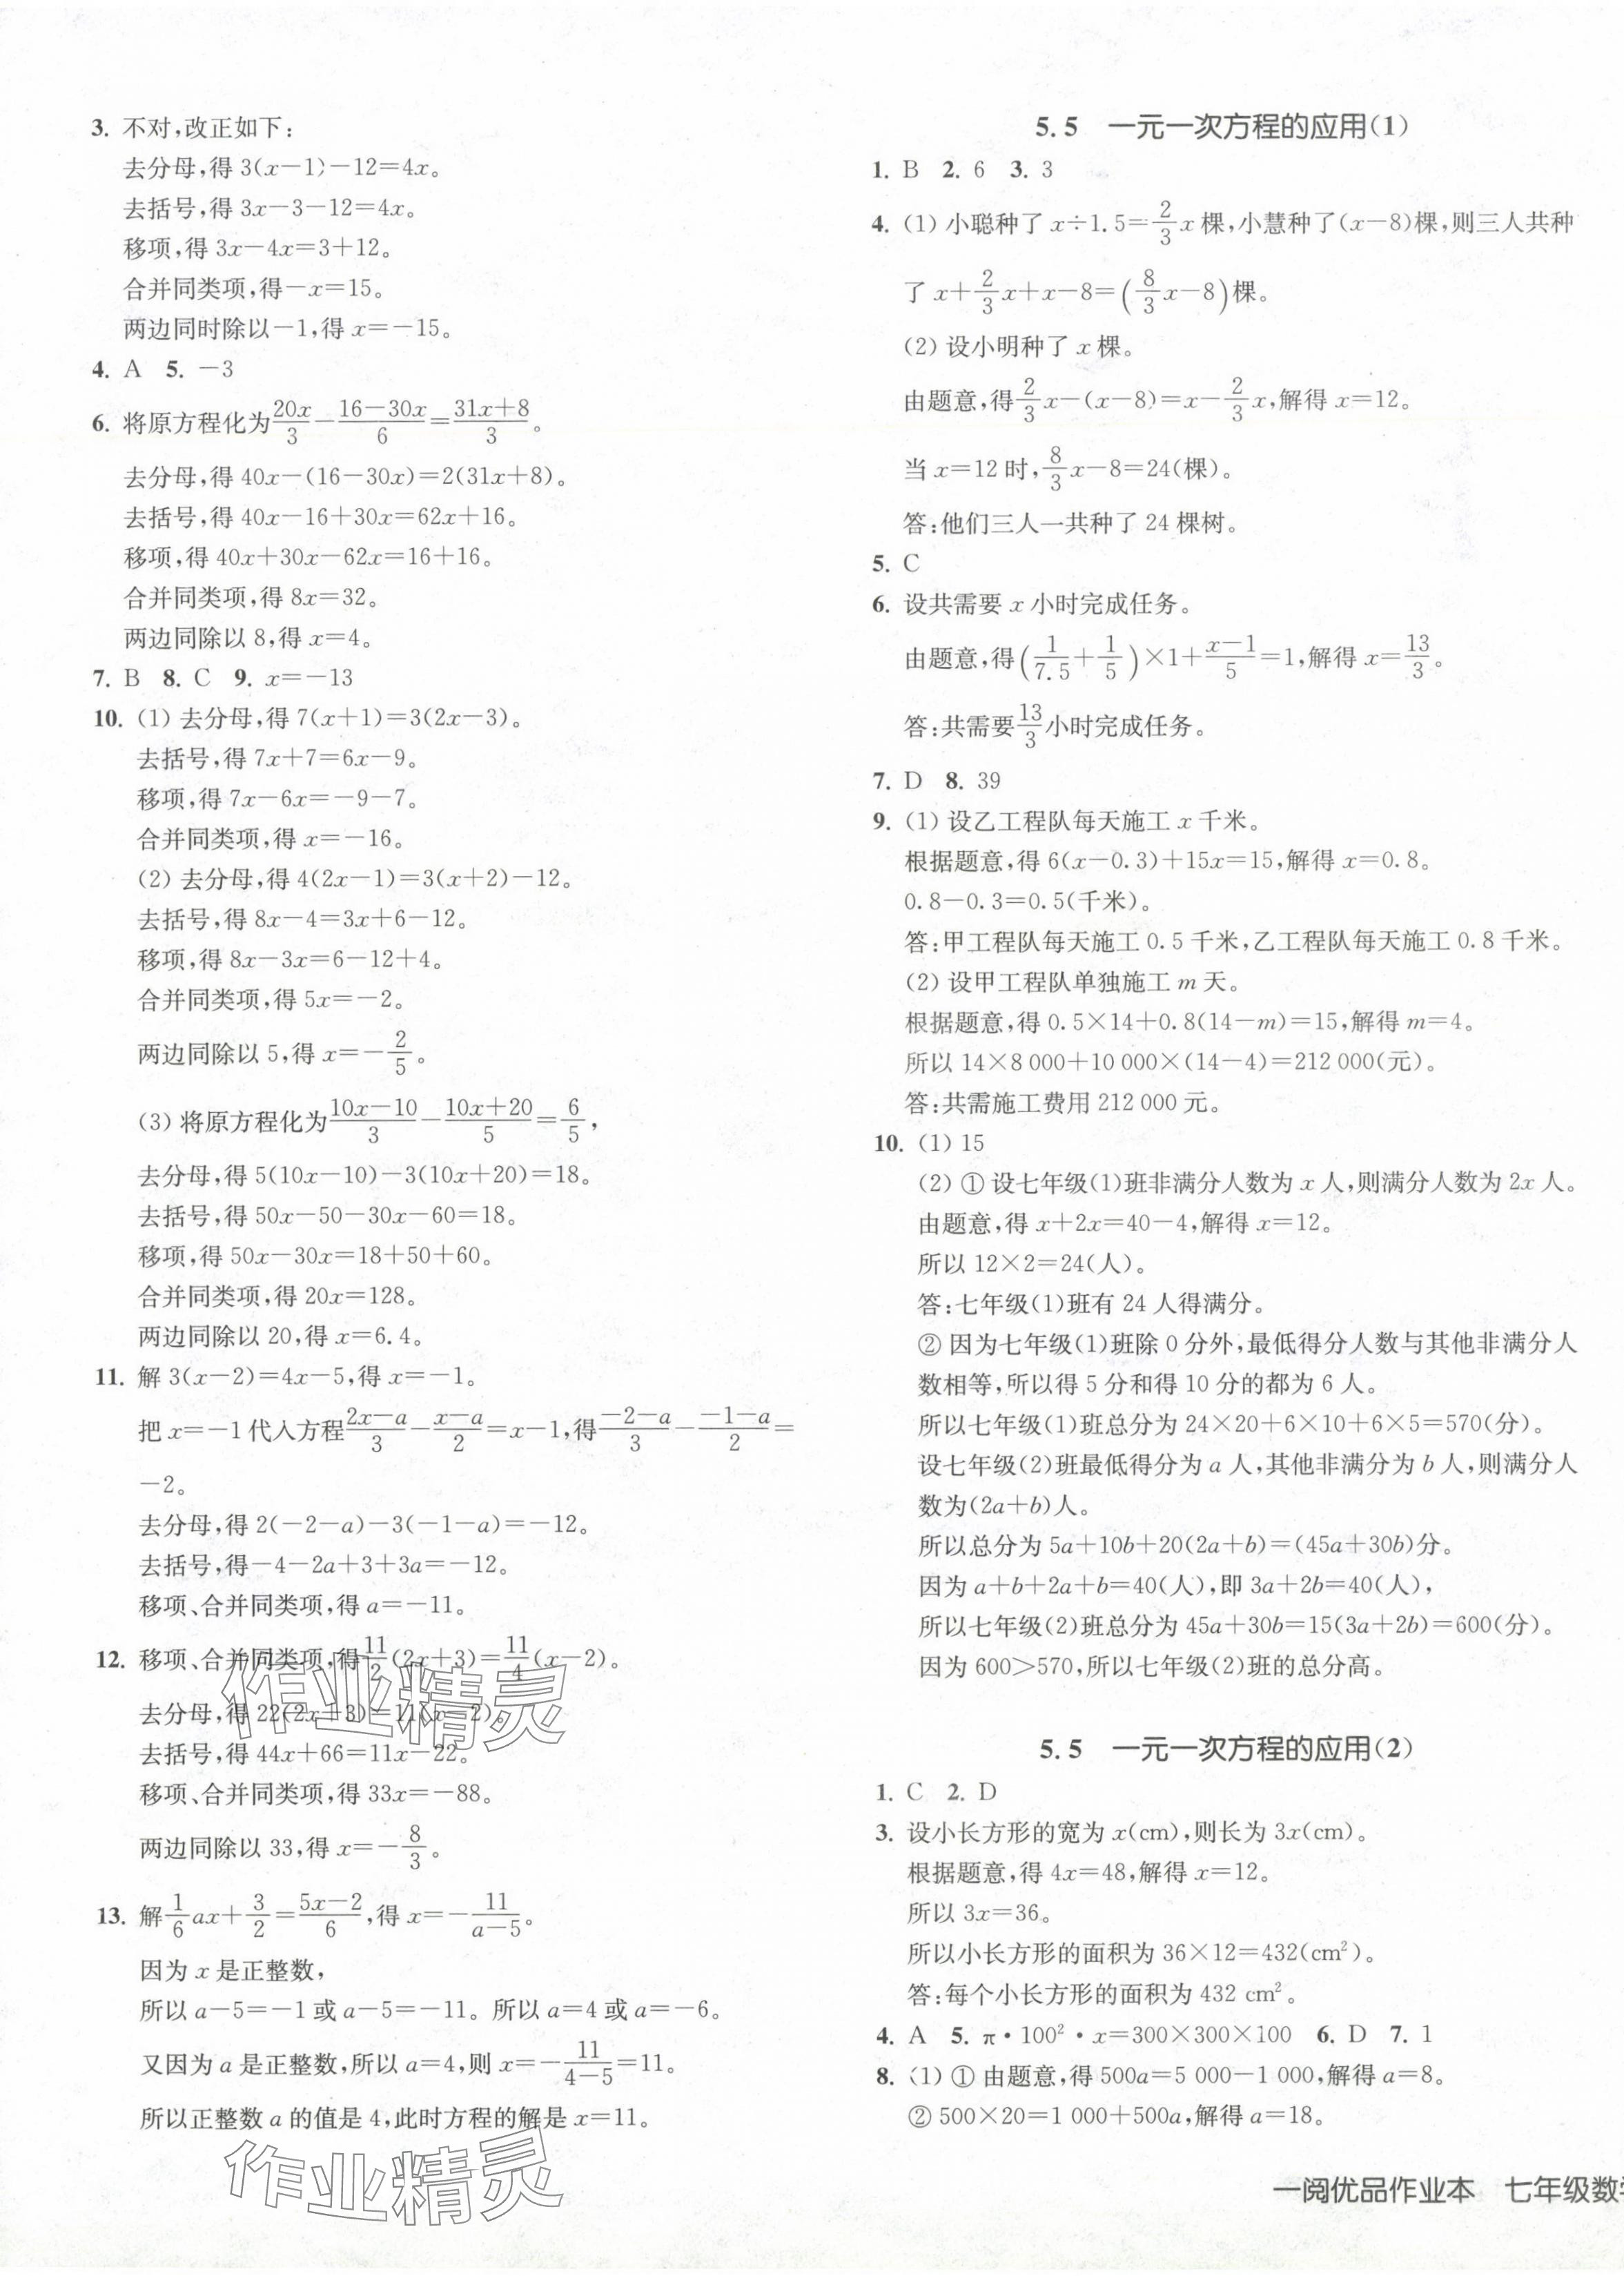 3. 不对,改正如下:
去分母,得 3(x−1)−12=4x。
去括号,得 3x−3−12=4x。
移项,得 3x−4x=3+12。
合并同类项,得−x=15。
两边同时除以−1,得 x=−15。
4. A 5. −3
6. 将原方程化为20x/3−(16−30x)/6=(31x+8)/3。
去分母,得 40x−(16−30x)=2(31x+8)。
去括号,得 40x−16+30x=62x+16。
移项,得 40x+30x−62x=16+16。
合并同类项,得 8x=32。
两边同除以 8,得 x=4。
7. B 8. C 9. x=−13
10. (1) 去分母,得 7(x+1)=3(2x−3)。
去括号,得 7x+7=6x−9。
移项,得 7x−6x=−9−7。
合并同类项,得 x=−16。
(2) 去分母,得 4(2x−1)=3(x+2)−12。
去括号,得 8x−4=3x+6−12。
移项,得 8x−3x=6−12+4。
合并同类项,得 5x=−2。
两边同除以 5,得 x=−2/5。
(3) 将原方程化为(10x−10)/3−(10x+20)/5=6/5,
去分母,得 5(10x−10)−3(10x+20)=18。
去括号,得 50x−50−30x−60=18。
移项,得 50x−30x=18+50+60。
合并同类项,得 20x=128。
两边同除以 20,得 x=6.4。
11. 解 3(x−2)=4x−5,得 x=−1。
把 x=−1代入方程(2x−a)/3−(x−a)/2=x−1,得(−2−a)/3−(−1−a)/2=
−2。
去分母,得 2(−2−a)−3(−1−a)=−12。
去括号,得−4−2a+3+3a=−12。
移项、合并同类项,得 a=−11。
12. 移项、合并同类项,得11/2(2x+3)=11/4(x−2)。
去分母,得 22(2x+3)=11(x−2)。
去括号,得 44x+66=11x−22。
移项、合并同类项,得 33x=−88。
两边同除以 33,得 x=−8/3。
13. 解1/6ax+3/2=(5x−2)/6,得 x=−11/(a−5)。
因为 x 是正整数,
所以 a−5=−1 或 a−5=−11。所以 a=4 或 a=−6。
又因为 a 是正整数,所以 a=4,则 x=−11/(4−5)=11。
所以正整数 a 的值是 4,此时方程的解是 x=11。
作业精灵
作业精灵
5.5 一元一次方程的应用(1)
1. B 2. 6 3. 3
4. (1) 小聪种了 x÷1.5=2/3x 棵,小慧种了(x−8)棵,则三人共种
了 x+2/3x+x−8=(8/3x−8)棵。
(2) 设小明种了 x 棵。
由题意,得2/3x−(x−8)=x−2/3x,解得 x=12。
当 x=12 时,8/3x−8=24(棵)。
答:他们三人一共种了 24 棵树。
5. C
6. 设共需要 x 小时完成任务。
由题意,得(1/7.5+1/5)×1+(x−1)/5=1,解得 x=13/3。
答:共需要13/3小时完成任务。
7. D 8. 39
9. (1) 设乙工程队每天施工 x 千米。
根据题意,得 6(x−0.3)+15x=15,解得 x=0.8。
0.8−0.3=0.5(千米)。
答:甲工程队每天施工 0.5 千米,乙工程队每天施工 0.8 千米。
(2) 设甲工程队单独施工 m 天。
根据题意,得 0.5×14+0.8(14−m)=15,解得 m=4。
所以 14×8 000+10 000×(14−4)=212 000(元)。
答:共需施工费用 212 000 元。
10. (1) 15
(2) ① 设七年级(1)班非满分人数为 x 人,则满分人数为 2x 人。
由题意,得 x+2x=40−4,解得 x=12。
所以 12×2=24(人)。
答:七年级(1)班有 24 人得满分。
② 因为七年级(1)班除 0 分外,最低得分人数与其他非满分人
数相等,所以得 5 分和得 10 分的都为 6 人。
所以七年级(1)班总分为 24×20+6×10+6×5=570(分)。
设七年级(2)班最低得分为 a 人,其他非满分为 b 人,则满分人
数为(2a+b)人。
所以总分为 5a+10b+20(2a+b)=(45a+30b)分。
因为 a+b+2a+b=40(人),即 3a+2b=40(人),
所以七年级(2)班总分为 45a+30b=15(3a+2b)=600(分)。
因为 600>570,所以七年级(2)班的总分高。
5.5 一元一次方程的应用(2)
1. C 2. D
3. 设小长方形的宽为 x(cm),则长为 3x(cm)。
根据题意,得 4x=48,解得 x=12。
所以 3x=36。
所以小长方形的面积为 36×12=432(cm²)。
答:每个小长方形的面积为 432 cm²。
4. A 5. π·100²·x=300×300×100 6. D 7. 1
8. (1) ① 由题意,得 500a=5 000−1 000,解得 a=8。
② 500×20=1 000+500a,解得 a=18。
一阅优品作业本 七年级数学